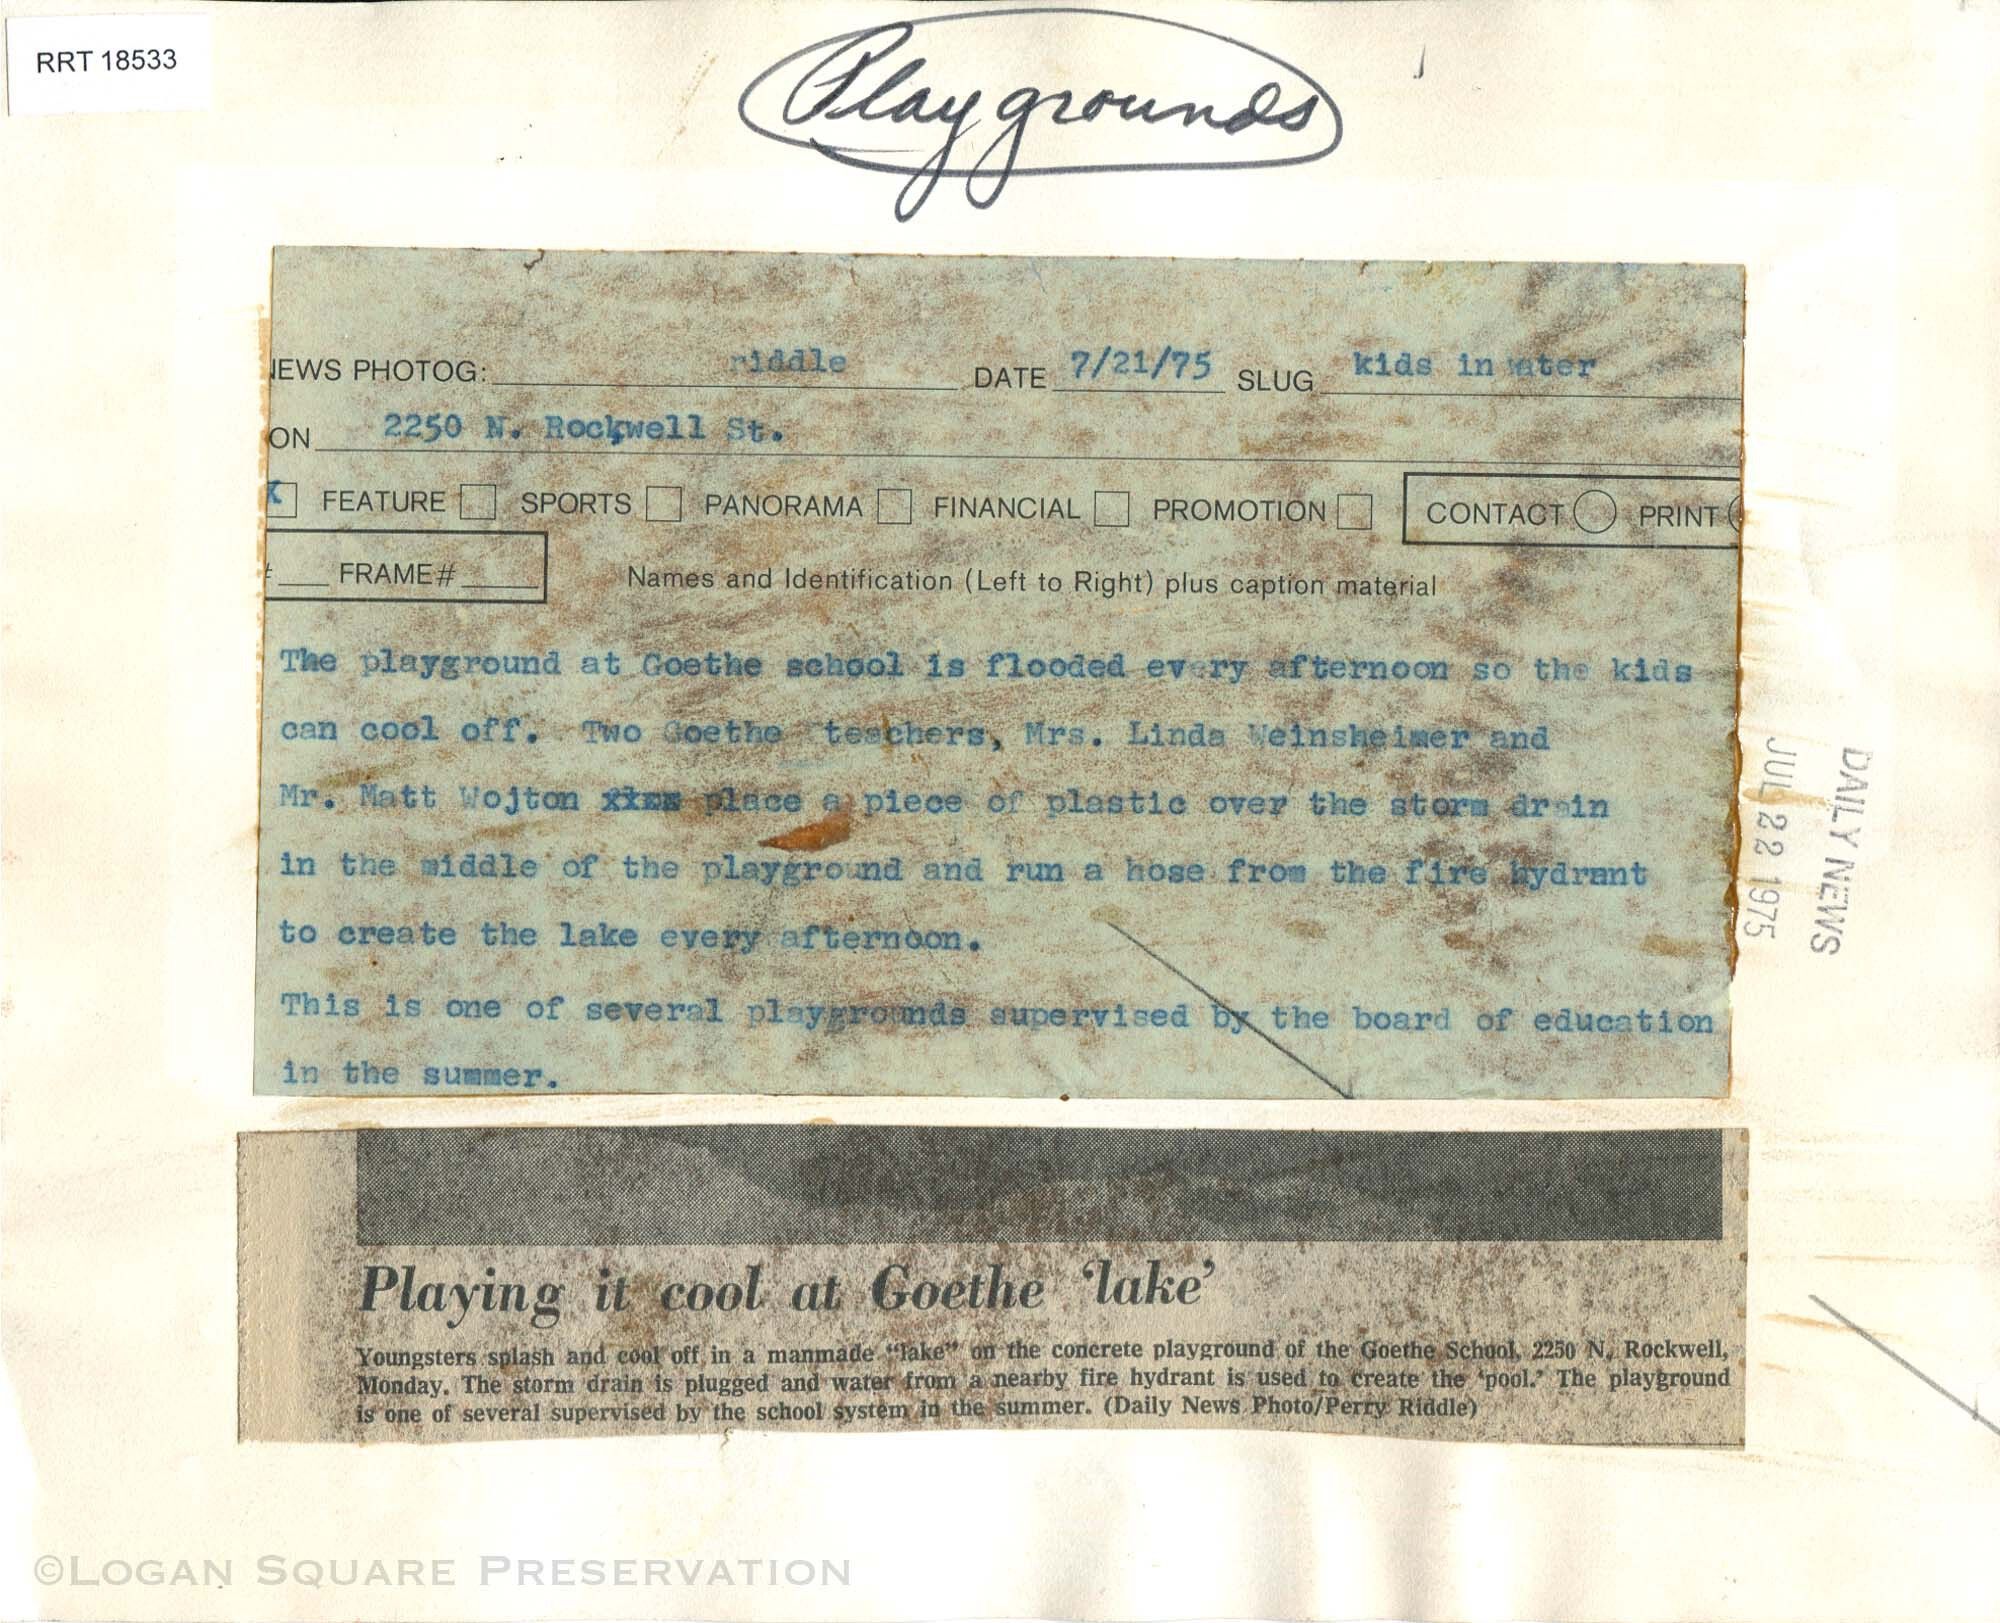 RRT 18533
Playgrounds
NEWS PHOTOG: riddle DATE 7/21/75 SLUG kids in water
ON 2250 N. Rockwell St.
X FEATURE SPORTS PANORAMA FINANCIAL PROMOTION CONTACT PRINT
# FRAME# Names and Identification (Left to Right) plus caption material
The playground at Goethe school is flooded every afternoon so the kids
can cool off. Two Goethe teachers, Mrs. Linda Weinsheimer and
Mr. Matt Wojton place a piece of plastic over the storm drain
in the middle of the playground and run a hose from the fire hydrant
to create the lake every afternoon.
This is one of several playgrounds supervised by the board of education
in the summer.
DAILY NEWS
JUL 22 1975
Playing it cool at Goethe ‘lake’
Youngsters splash and cool off in a manmade “lake” on the concrete playground of the Goethe School, 2250 N. Rockwell,
Monday. The storm drain is plugged and water from a nearby fire hydrant is used to create the ‘pool.’ The playground
is one of several supervised by the school system in the summer. (Daily News Photo/Perry Riddle)
©LOGAN SQUARE PRESERVATION